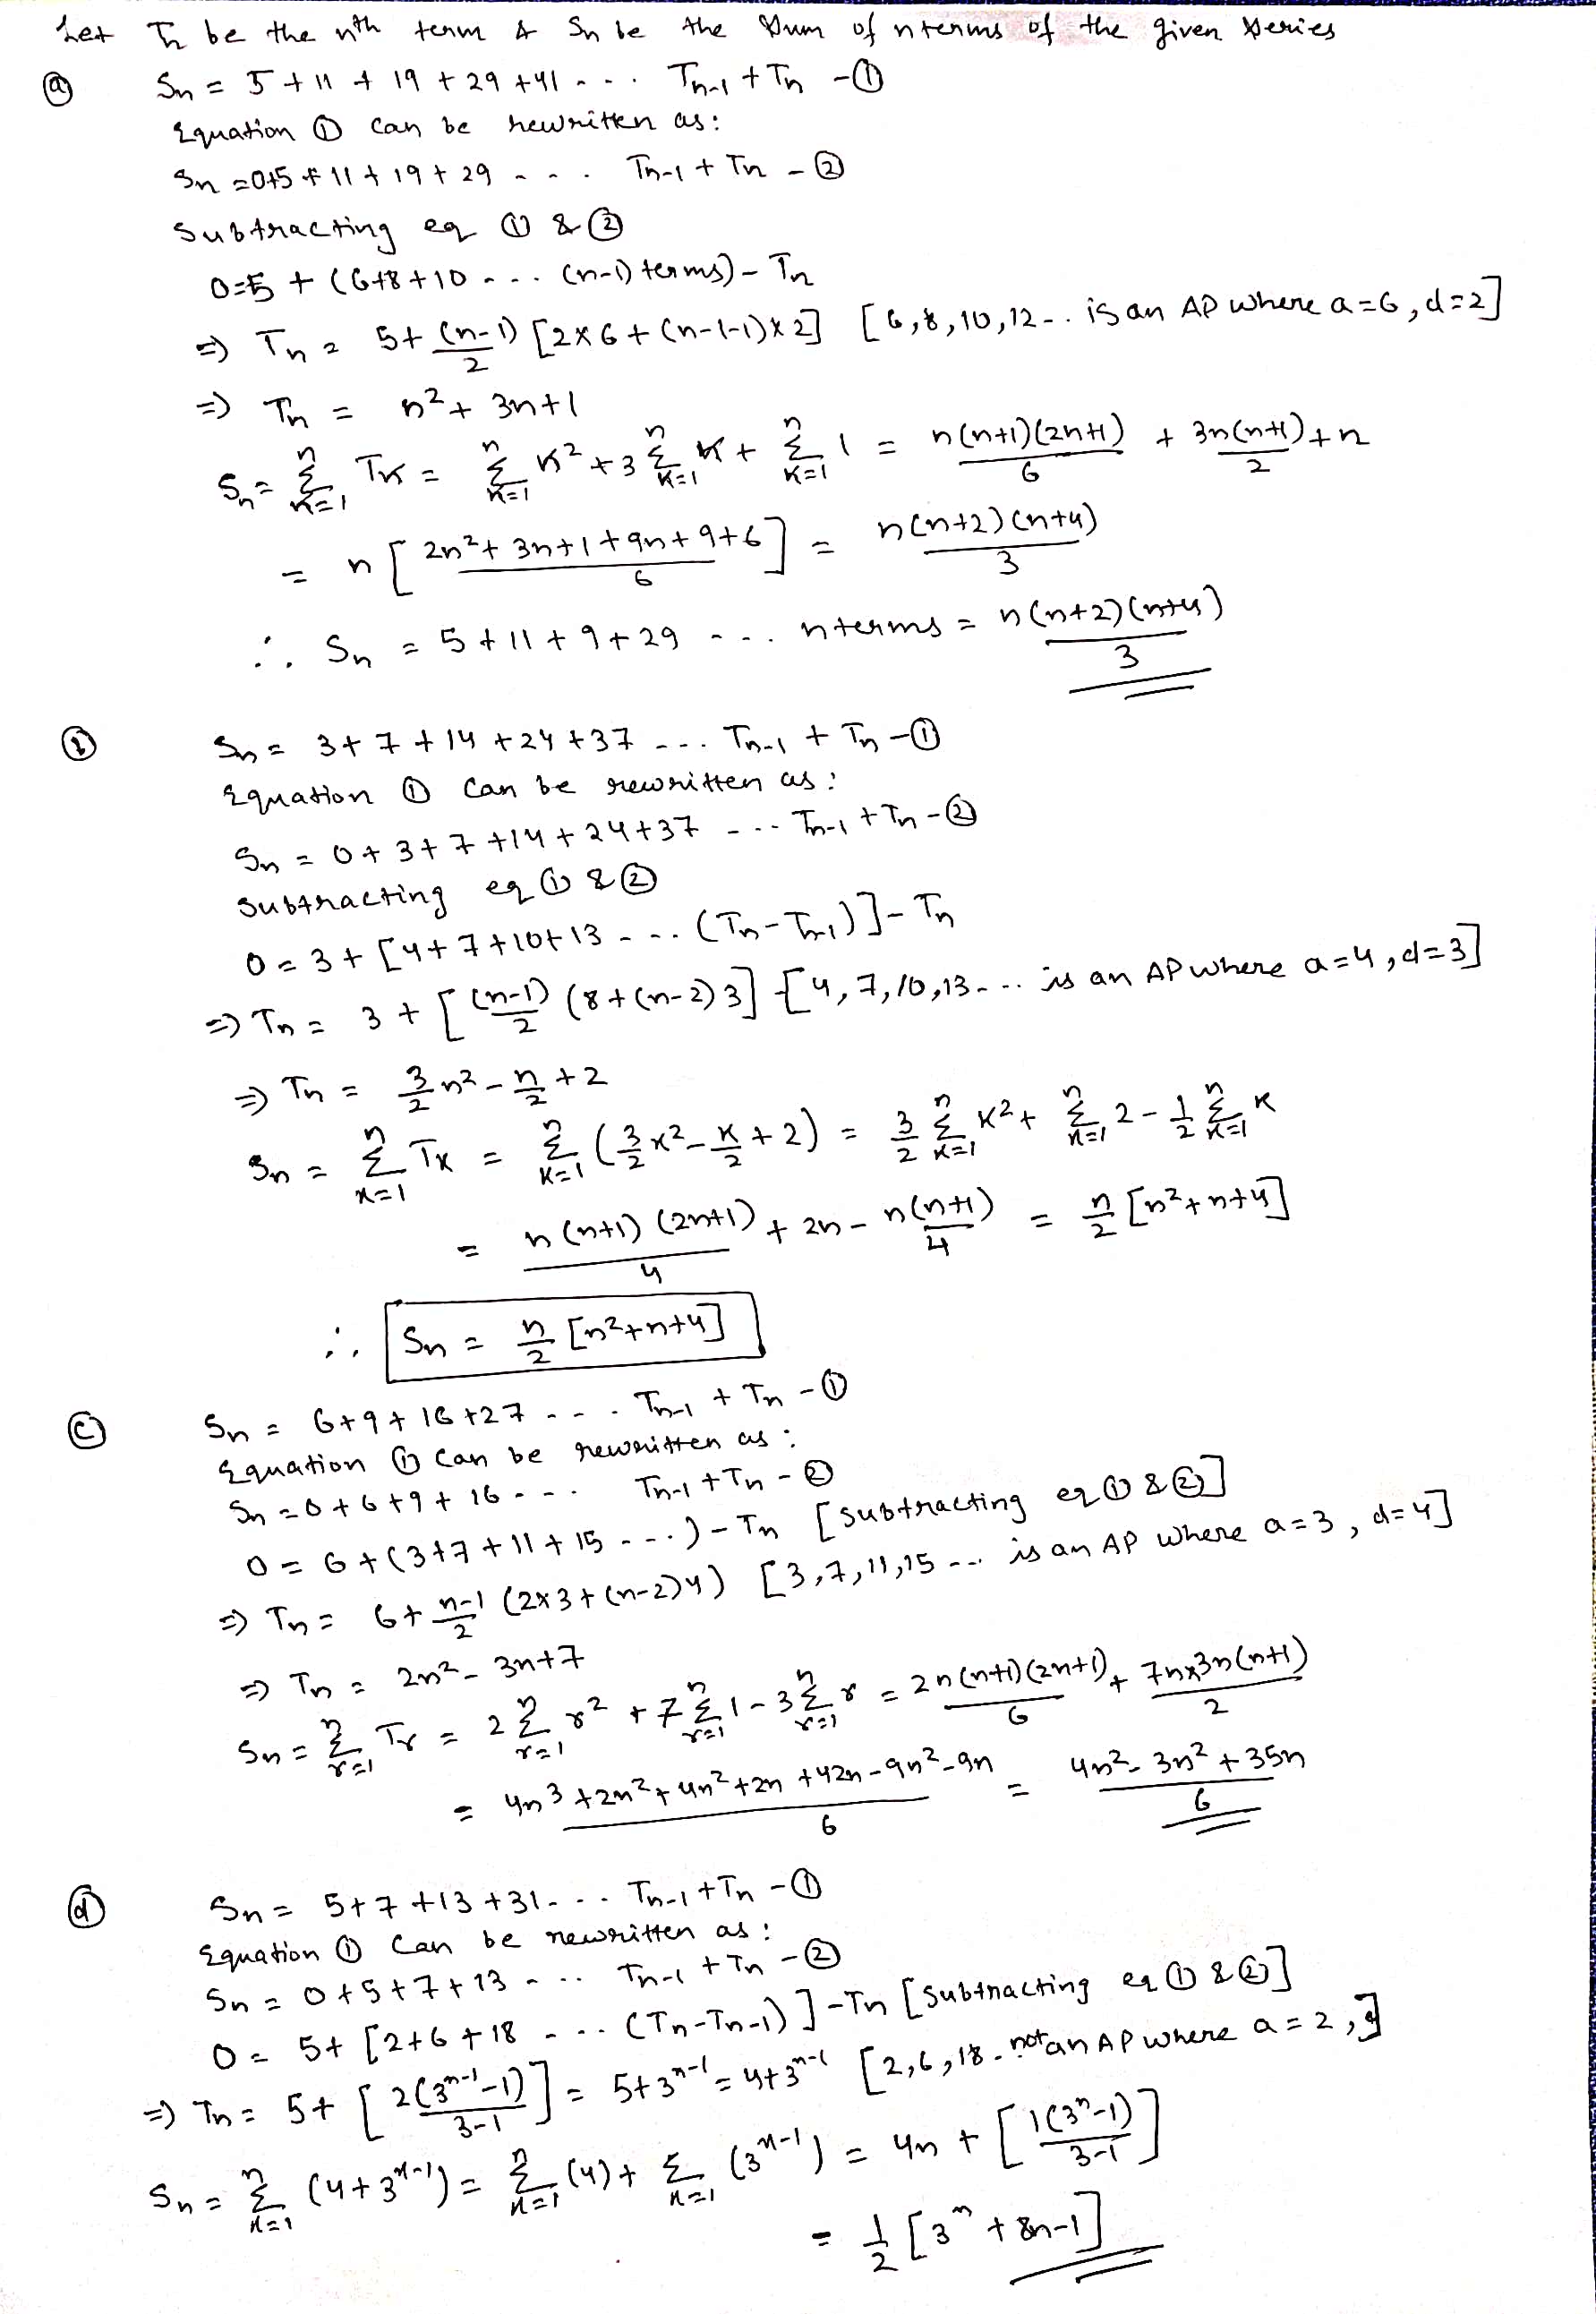 Let Tn be the nth term & Sn be the Sum of n terms of the given Series
ⓐ Sn = 5 + 11 + 19 + 29 + 41 ... Tn-1 + Tn - ①
Equation ① can be rewritten as:
Sn = 0+5 + 11 + 19 + 29 ... Tn-1 + Tn - ②
Subtracting eq ① & ②
0=5 + (6+8+10 ... (n-1) terms) - Tn
⇒ Tn = 5 + (n-1)/2 [2×6 + (n-1-1)×2] [6,8,10,12... is an AP where a=6, d=2]
⇒ Tn = n² + 3n+1
Sn = Σ_{K=1}^{n} TK = Σ_{K=1}^{n} K² + 3 Σ_{K=1}^{n} K + Σ_{K=1}^{n} 1 = n(n+1)(2n+1)/6 + 3n(n+1)/2 + n
= n [ (2n² + 3n+1 + 9n + 9+6)/6 ] = n(n+2)(n+4)/3
∴ Sn = 5 + 11 + 9 + 29 ... n terms = n(n+2)(n+4)/3
ⓑ Sn = 3 + 7 + 14 + 24 + 37 ... Tn-1 + Tn - ①
Equation ① can be rewritten as:
Sn = 0 + 3 + 7 + 14 + 24 + 37 ... Tn-1 + Tn - ②
Subtracting eq ① & ②
0 = 3 + [4 + 7 + 10 + 13 ... (Tn - Tn-1)] - Tn
⇒ Tn = 3 + [ (n-1)/2 (8 + (n-2)3] [4, 7, 10, 13... is an AP where a=4, d=3]
⇒ Tn = 3/2 n² - n/2 + 2
Sn = Σ_{K=1}^{n} TK = Σ_{K=1}^{n} (3/2 K² - K/2 + 2) = 3/2 Σ_{K=1}^{n} K² + Σ_{K=1}^{n} 2 - 1/2 Σ_{K=1}^{n} K
= n(n+1)(2n+1)/4 + 2n - n(n+1)/4 = n/2 [n² + n+4]
∴ Sn = n/2 [n²+n+4]
ⓒ Sn = 6+9+16+27 ... Tn-1 + Tn - ①
Equation ① can be rewritten as:
Sn = 0 + 6 + 9 + 16 ... Tn-1 + Tn - ②
0 = 6 + (3+7+11+15 ...) - Tn [subtracting eq ① & ②]
⇒ Tn = 6 + (n-1)/2 (2×3 + (n-2)4) [3,7,11,15 ... is an AP where a=3, d=4]
⇒ Tn = 2n² - 3n+7
Sn = Σ_{r=1}^{n} Tr = 2 Σ_{r=1}^{n} r² + 7 Σ_{r=1}^{n} 1 - 3 Σ_{r=1}^{n} r = 2n(n+1)(2n+1)/6 + 7n×3n(n+1)/2
= (4n³ + 2n² + 4n² + 2n + 42n - 9n² - 9n)/6 = (4n² - 3n² + 35n)/6
ⓓ Sn = 5 + 7 + 13 + 31 ... Tn-1 + Tn - ①
Equation ① can be rewritten as:
Sn = 0 + 5 + 7 + 13 ... Tn-1 + Tn - ②
0 = 5 + [2+6+18 ... (Tn - Tn-1)] - Tn [Subtracting eq ① & ②]
⇒ Tn = 5 + [ 2(3^{n-1} - 1)/(3-1) ] = 5 + 3^{n-1} = 4 + 3^{n-1} [2,6,18.. not an AP where a=2,]
Sn = Σ_{K=1}^{n} (4 + 3^{K-1}) = Σ_{K=1}^{n} (4) + Σ_{K=1} (3^{K-1}) = 4n + [ 1(3^n - 1)/(3-1) ]
= 1/2 [3^n + 8n - 1]